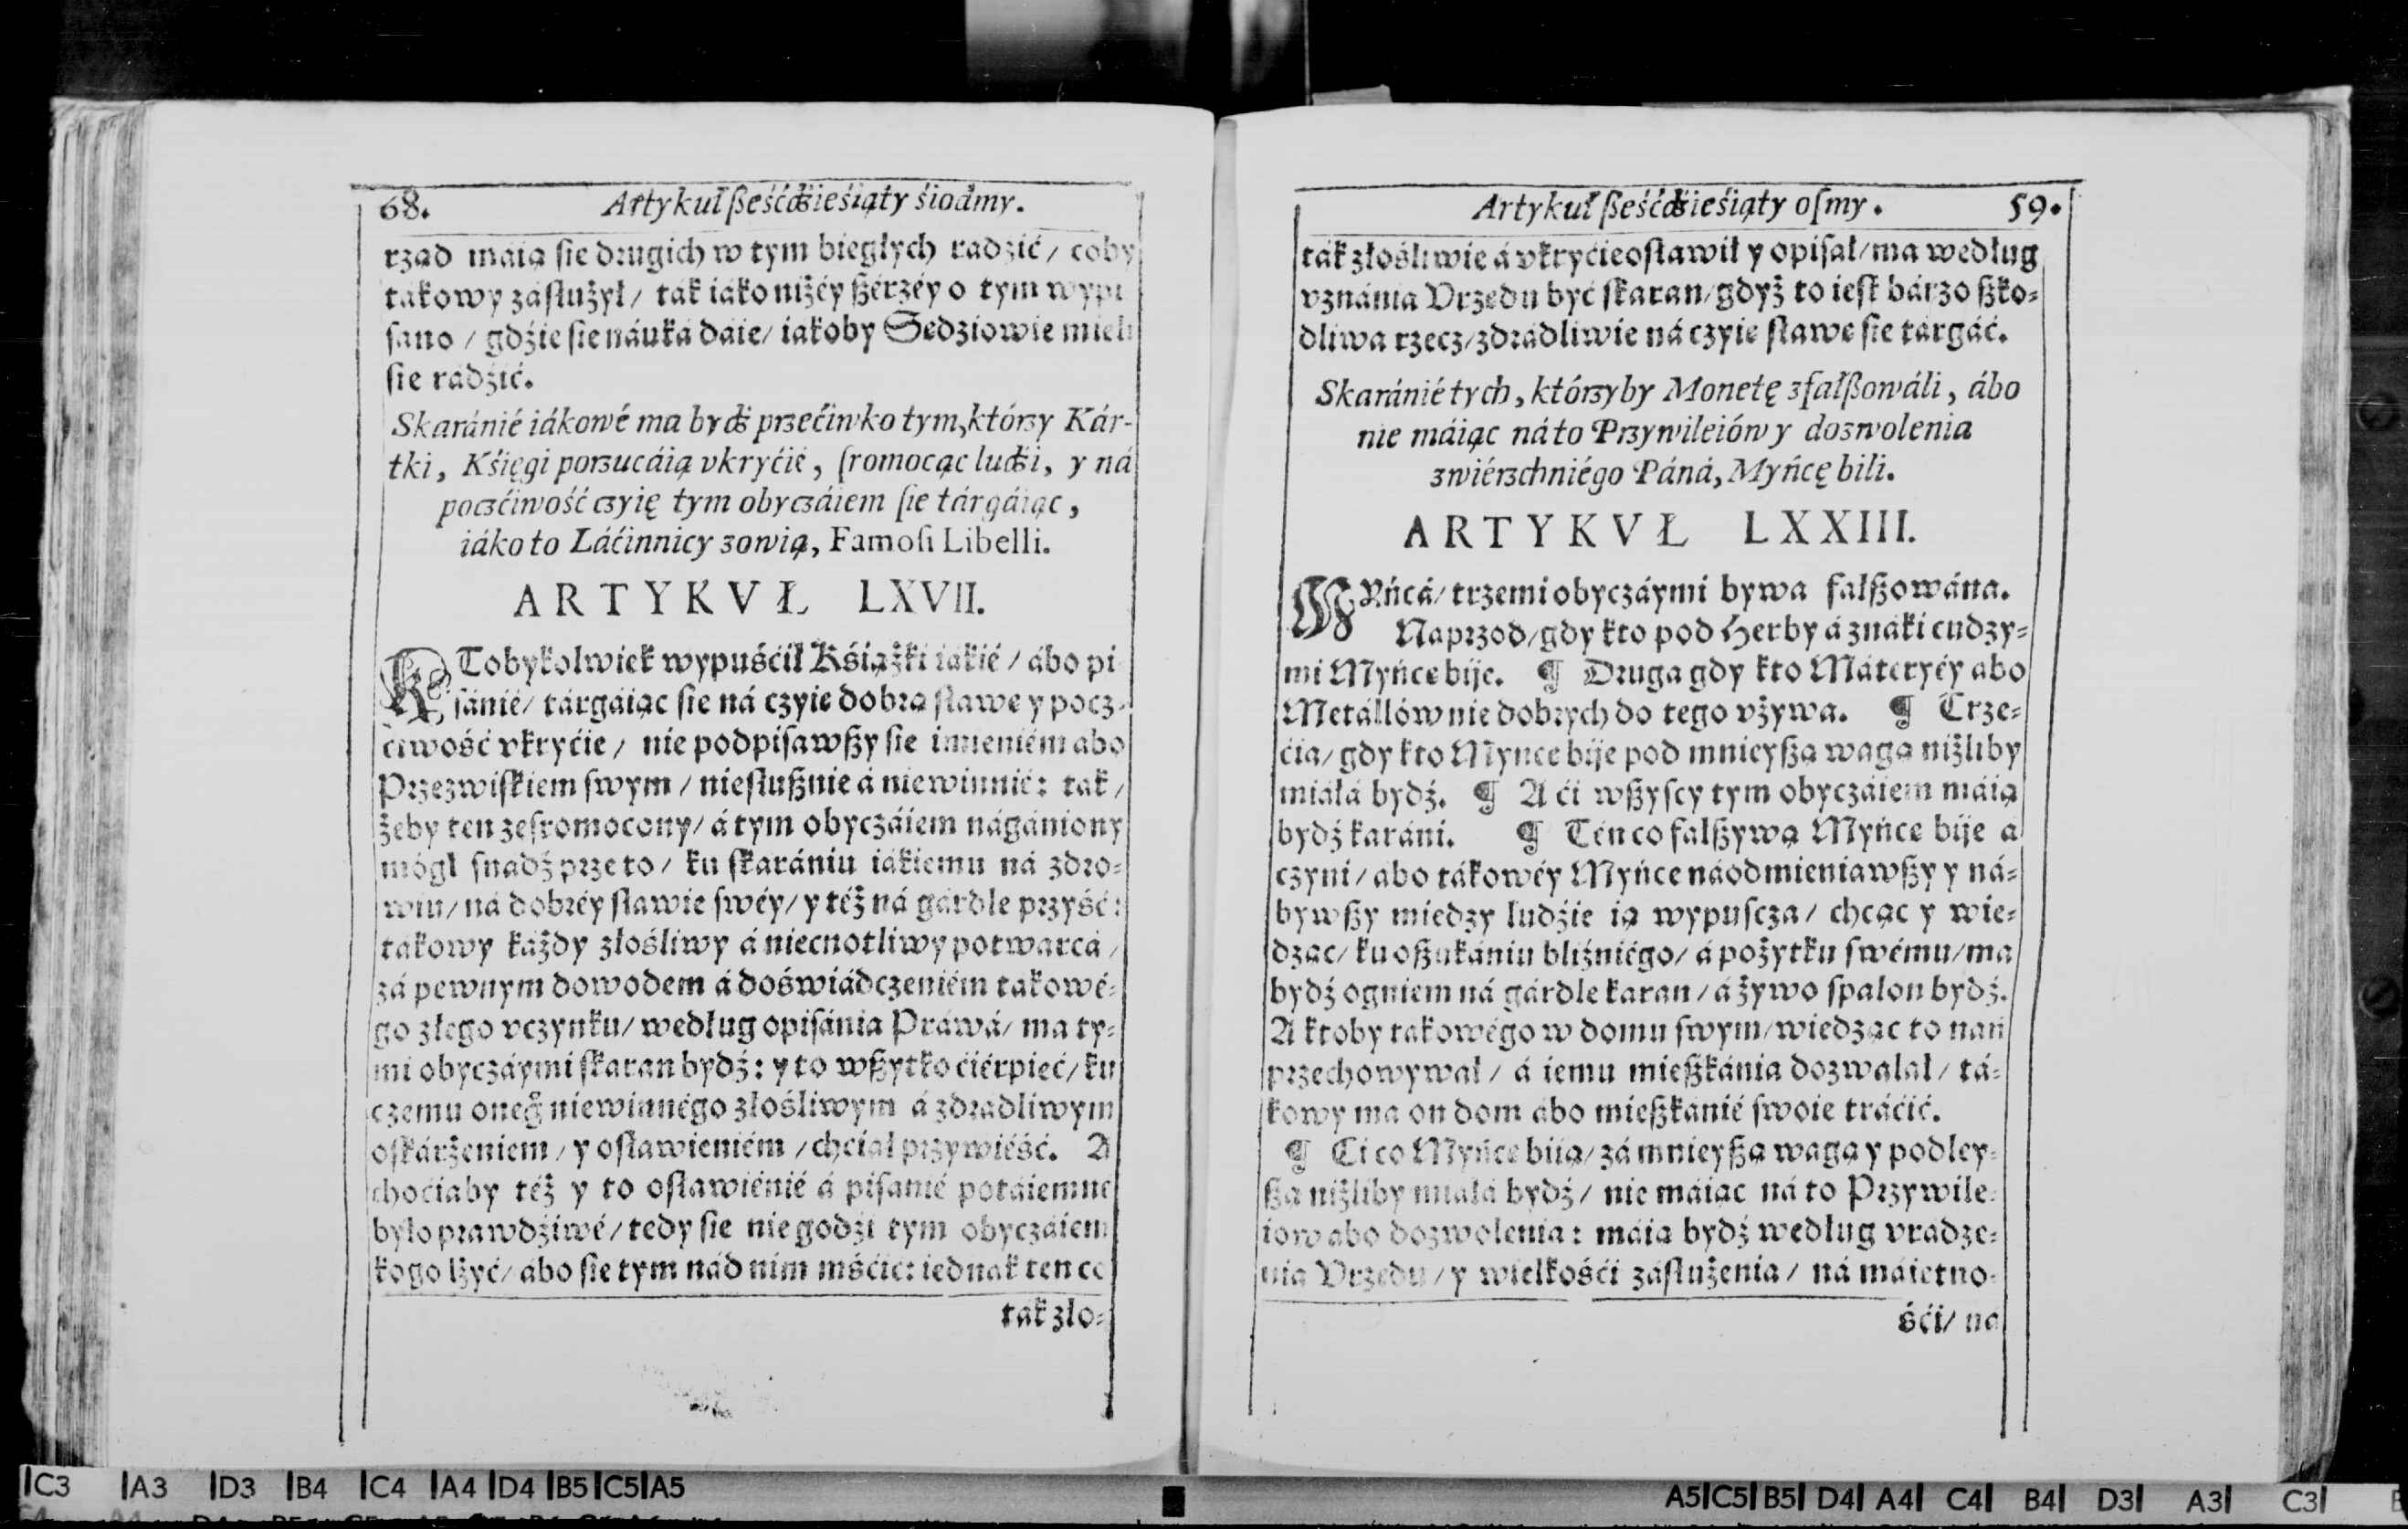 68. Artykuł ßeśćdźieśiąty śiodmy.
rzad máią ſie drugich w tym biegłych rádźić / coby
tákowy záſłużył / ták iáko niżéy ßérzéy o tym wypi
ſano / gdźie ſie náuká dáie / iákoby Sedziowie mieli
ſie rádźić.
Skaránié iákowé ma bydź przećiwko tym, którzy Kár-
tki, Kśięgi porzucáią vkryćié, ſromocąc ludźi, y ná
poczćiwość czyię tym obyczáiem ſie tárgáiąc,
iáko to Láćinnicy zowią, Famoſi Libelli.
ARTYKVŁ LXVII.
KTobykolwiek wypuśćił Kśiążki iákié / ábo pi
ſánié / tárgáiąc ſie ná czyie dobrą ſławe y pocz-
ciwość vkryćie / nie podpiſawßy ſie imieniém abo
Przezwiſkiem ſwym / nieſłußnie á niewinnié: ták /
żeby ten zeſromocony / á tym obyczáiem nágániony
mógł ſnadź prze to / ku ſkarániu iákiemu ná zdro-
wiu / ná dobréy ſławie ſwéy / y téż ná gárdle przyść:
tákowy káżdy złośliwy á niecnotliwy potwarcá /
zá pewnym dowodem á doświádczeniém tákowé-
go złego vczynku / według opiſánia Práwá / ma ty-
mi obyczáymi ſkaran bydź: y to wßytko ćiérpieć / ku
czemu oneg̃ niewinnégo złośliwym á zdradliwym
oſkárżeniem / y oſławieniém / chciał przywiéść. A
choćiaby téż y to oſławiénié á piſanié potáiemne
było prawdźiwé / tedy ſie nie godźi tym obyczáiem
kogo lżyć / ábo ſie tym nád nim mśćić: iednak ten co
tak zło-
Artykuł ßeśćdźieśiąty oſmy. 59.
ták złośliwie á vkryćie oſławił y opiſał / ma według
vznánia Vrzedu być ſkaran / gdyż to ieſt bárzo ßko-
dliwa rzecz / zdradliwie ná czyie ſławe ſie tárgáć.
Skaránié tych, którzyby Monetę zfałßowáli, ábo
nie máiąc ná to Przywileiów y dozwolenia
zwiérzchniégo Páná, Myńcę bili.
ARTYKVŁ LXXIII.
MYńcá / trzemi obyczáymi bywa fałßowána.
Naprzod / gdy kto pod Herby á znáki cudzy-
mi Myńce bije. ¶ Druga gdy kto Máteryéy abo
Metállów nie dobrych do tego vżywa. ¶ Trze-
ćia / gdy kto Myńce bije pod mnieyßą wagą niżliby
miáłá bydź. ¶ A ći wßyſcy tym obyczáiem máią
bydź karáni. ¶ Tén co falßywą Myńce bije á
czyni / abo tákowéy Myńce náodmieniawßy y ná-
bywßy miedzy ludźie ią wypuſcza / chcąc y wie-
dząc / ku oßukániu bliźniégo / á pożytku ſwému / ma
bydź ogniem ná gárdle karan / á żywo ſpalon bydź.
A ktoby tákowégo w domu ſwym / wiedząc to nań
przechowywał / á iemu mießkánia dozwalał / tá-
kowy ma on dom ábo mießkánié ſwoie tráćić.
¶ Ci co Myńce biią / zá mnieyßą wagą y podley-
ßą niżliby miáłá bydź / nie máiąc ná to Przywile-
iow abo dozwolenia: máią bydź według vradze-
nia Vrzedu / y wielkośći záſłużenia / ná máietno-
śći / na
C3 A3 D3 B4 C4 A4 D4 B5 C5 A5
A5 C5 B5 D4 A4 C4 B4 D3 A3 C3